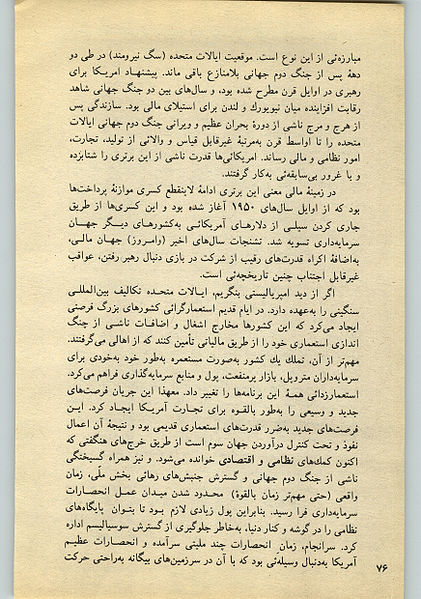 مبارزه‌ئی از این نوع است. موقعیت ایالات متحده (سگ نیرومند) در طی دو
دههٔ پس از جنگ دوم جهانی بلامنازع باقی ماند. پیشنهاد امریکا برای
رهبری در اوایل قرن مطرح شده بود، و سال‌های بین دو جنگ جهانی شاهد
رقابت افزاینده میان نیویورك و لندن برای استیلای مالی بود. سازندگی پس
از هرج و مرج ناشی از دورهٔ بحران عظیم و ویرانی جنگ دوم جهانی ایالات
متحده را تا اواسط قرن به‌مرتبهٔ غیرقابل قیاس و والائی از تولید، تجارت،
امور نظامی و مالی رساند. امریکائی‌ها قدرت ناشی از این برتری را شتابزده
و با غرور بی‌سابقه‌ئی به‌کار گرفتند.
در زمینهٔ مالی معنی این برتری ادامهٔ لاینقطع کسری موازنهٔ پرداخت‌ها
بود که از اوایل سال‌های ۱۹۵۰ آغاز شده بود و این کسری‌ها از طریق
جاری کردن سیلی از دلارهای آمریکائی به‌کشورهای دیگر جهان
سرمایه‌داری تسویه شد. تشنجات سال‌های اخیر (وامروز) جهان مالی،
به‌اضافهٔ اکراه قدرت‌های رقیب از شرکت در بازی دنبال رهبر رفتن، عواقب
غیرقابل اجتناب چنین تاریخچه‌ئی است.
اگر از دید امپریالیستی بنگریم، ایالات متحده تکالیف بین‌المللی
سنگینی را به‌عهده دارد. در ایام قدیم استعمارگرائی کشورهای بزرگ فرصتی
ایجاد می‌کرد که این کشورها مخارج اشغال و اضافات ناشی از جنگ
اندازی استعماری خود را از طریق مالیاتی تأمین کنند که از اهالی می‌گرفتند.
مهم‌تر از آن، تملك یك کشور به‌صورت مستعمره به‌طور خود به‌خودی برای
سرمایه‌داران متروپل، بازار پرمنفعت، پول و منابع سرمایه‌گذاری فراهم می‌کرد.
استعمارزدائی همهٔ این برنامه‌ها را تغییر داد. معهذا این جریان فرصت‌های
جدید و وسیعی را به‌طور بالقوه برای تجارت آمریکا ایجاد کرد. این
فرصت‌های جدید به‌ضرر قدرت‌های استعماری قدیمی بود و نتیجهٔ آن اعمال
نفوذ و تحت کنترل درآوردن جهان سوم است از طریق خرج‌های هنگفتی که
اکنون کمك‌های نظامی و اقتصادی خوانده می‌شود. و نیز همراه گسیختگی
ناشی از جنگ دوم جهانی و گسترش جنبش‌های رهائی بخش ملّی، زمان
واقعی (حتی مهم‌تر زمان بالقوهٔ) محدود شدن میدان عمل انحصارات
سرمایه‌داری فرا رسید. بنابراین پول زیادی لازم بود تا بتوان پایگاه‌های
نظامی را در گوشه و کنار دنیا، به‌خاطر جلوگیری از گسترش سوسیالیسم اداره
کرد. سرانجام، زمان انحصارات چند ملیتی سرآمده و انحصارات عظیم
آمریکا به‌دنبال وسیله‌ئی بود که با آن در سرزمین‌های بیگانه به‌راحتی حرکت
۷۶